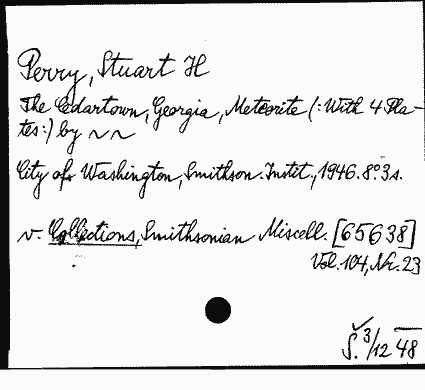 Perry, Stuart H
The Cedartown, Georgia, Meteorite (: With 4 Pla-
tes:) by ~~
City of Washington, Smithson. Instit., 1946. 8° 3 s.
v. Collections, Smithsonian Miscell. [65638]
Vol. 104, Nr. 23
S. 3/12 48